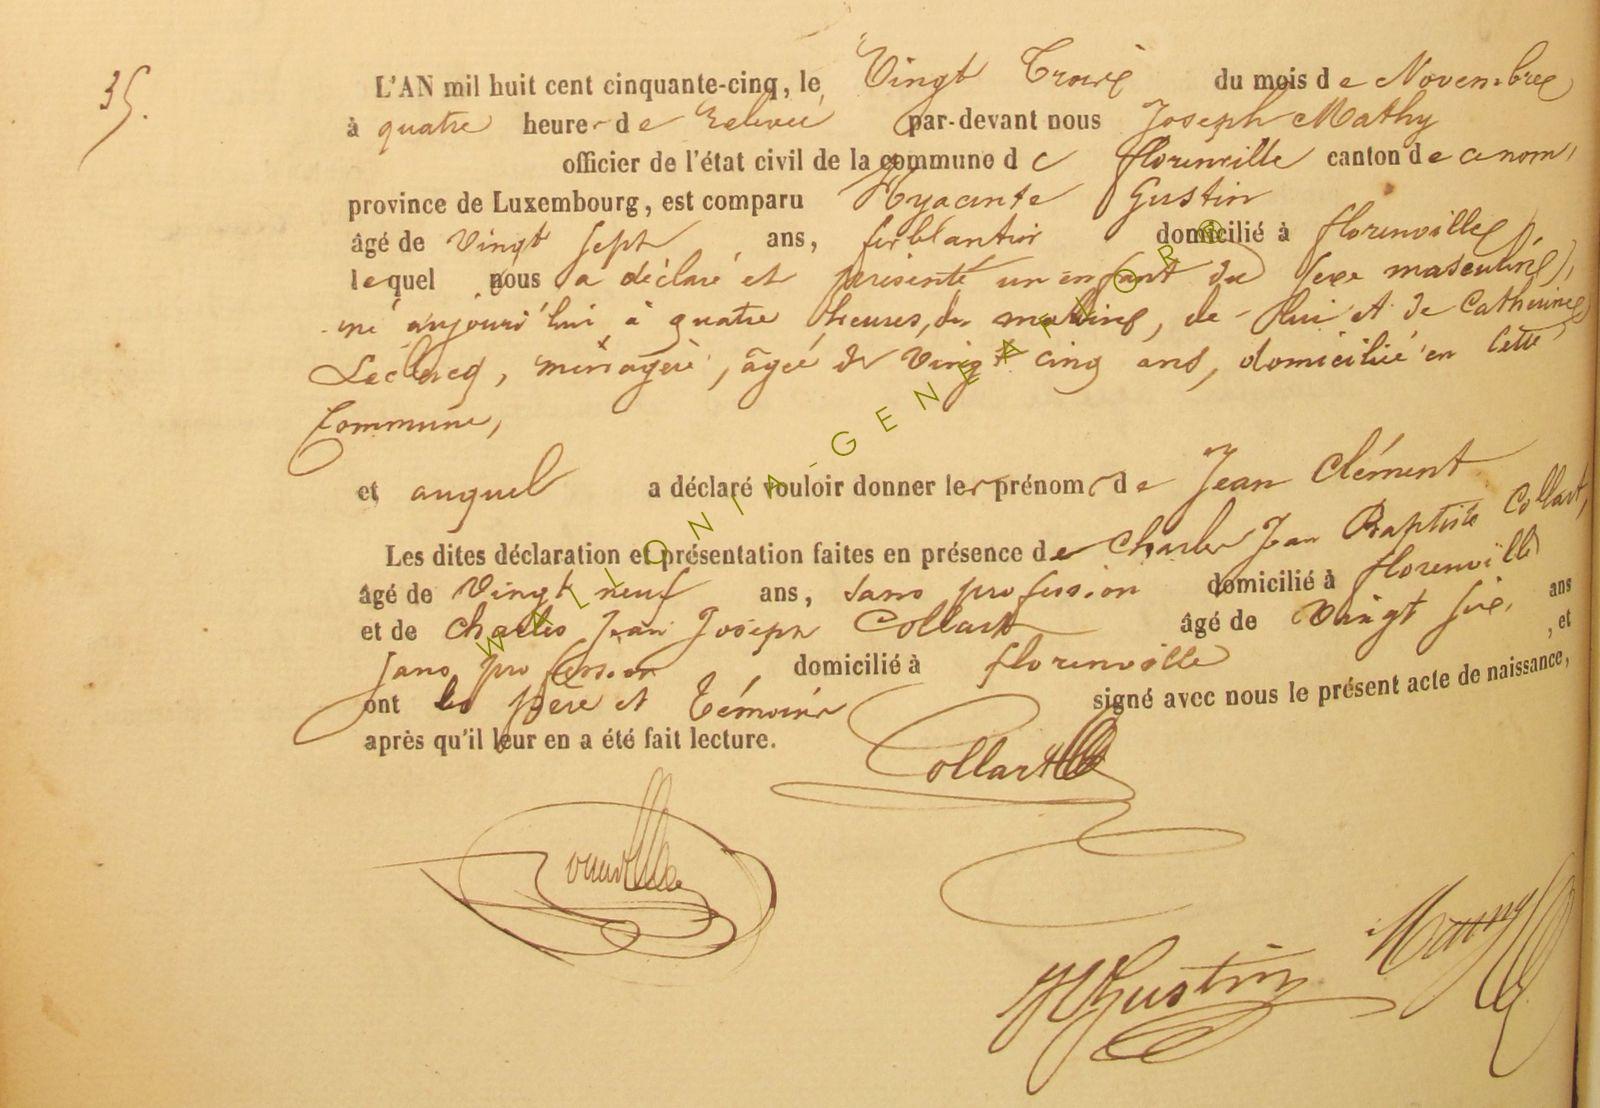 35.
L'AN mil huit cent cinquante-cinq, le Vingt Trois du mois de Novembre
à quatre heures de Relevée par-devant nous Joseph Mathy
officier de l'état civil de la commune de florenville canton de ce nom,
province de Luxembourg, est comparu Hyacinte Gustin
âgé de Vingt sept ans, ferblantier domicilié à florenville,
lequel nous a déclaré et présenté un enfant du sexe masculin,
né aujourd'hui à quatre heures, du matin, de lui et de Catherine
Leclercq, ménagère, âgée de Vingt cinq ans, domiciliée en cette
Commune,
et auquel a déclaré vouloir donner les prénoms de Jean Clément
Les dites déclaration et présentation faites en présence de Charles Jean Baptiste Collart,
âgé de Vingt neuf ans, sans profession domicilié à florenville
et de Charles Jean Joseph Collart âgé de Vingt six, ans
sans profession, domicilié à florenville, et
ont les père et Témoins signé avec nous le présent acte de naissance,
après qu'il leur en a été fait lecture.
Collart
HGustin
WALLONIA-GENEA